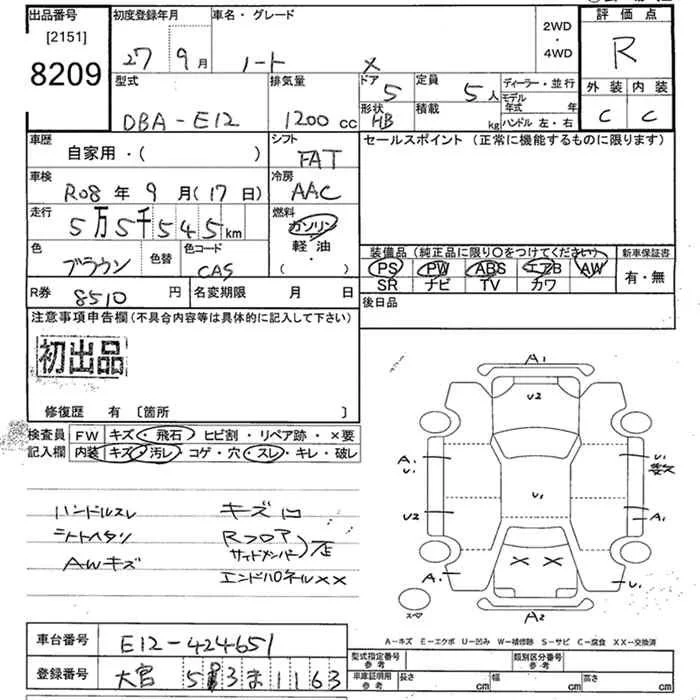 出品番号
[2151]
8209
初度登録年月
27 9 月
車名・グレード
ノート X
2WD
・
4WD
評価点
R
外装 内装
C C
型式
DBA-E12
排気量
1200 cc
ドア 5
形状 HB
定員 5 人
積載 kg
ディーラー・並行
モデル
年式 年
ハンドル 左・右
車歴
自家用・( )
シフト
FAT
車検
R08 年 9 月(17 日)
冷房
AAC
走行
5万5千545 km
燃料
ガソリン
軽油
( )
色
ブラウン
色替
色コード
CAS
R券 8510 円
名変期限 月 日
セールスポイント(正常に機能するものに限ります)
装備品(純正品に限り〇をつけてください)
PS PW ABS エアB AW
SR ナビ TV カワ
新車保証書
有・無
後日品
注意事項申告欄(不具合内容等は具体的に記入して下さい)
初出品
修復歴 有 〔箇所 〕
検査員
記入欄
FW キズ・飛石・ヒビ割・リペア跡・×要
内装 キズ・汚レ・コゲ・穴・スレ・キレ・破レ
ハンドルスレ
シートヘタリ
AWキズ
キズ凹
Rフロア
サイドメンバー
エンドパネルXX
A1
U2
A1
U1
U1
U1
U2
A1
× ×
A1
U1
スペア
A2
A-キズ E-エクボ U-凹み W-補修跡 S-サビ C-腐食 XX-交換済
車台番号 E12-424651
登録番号 大宮 5 3 ま 1163
型式指定番号
参考
類別区分番号
参考
車庫証明用
参考
長さ cm
幅 cm
高さ cm